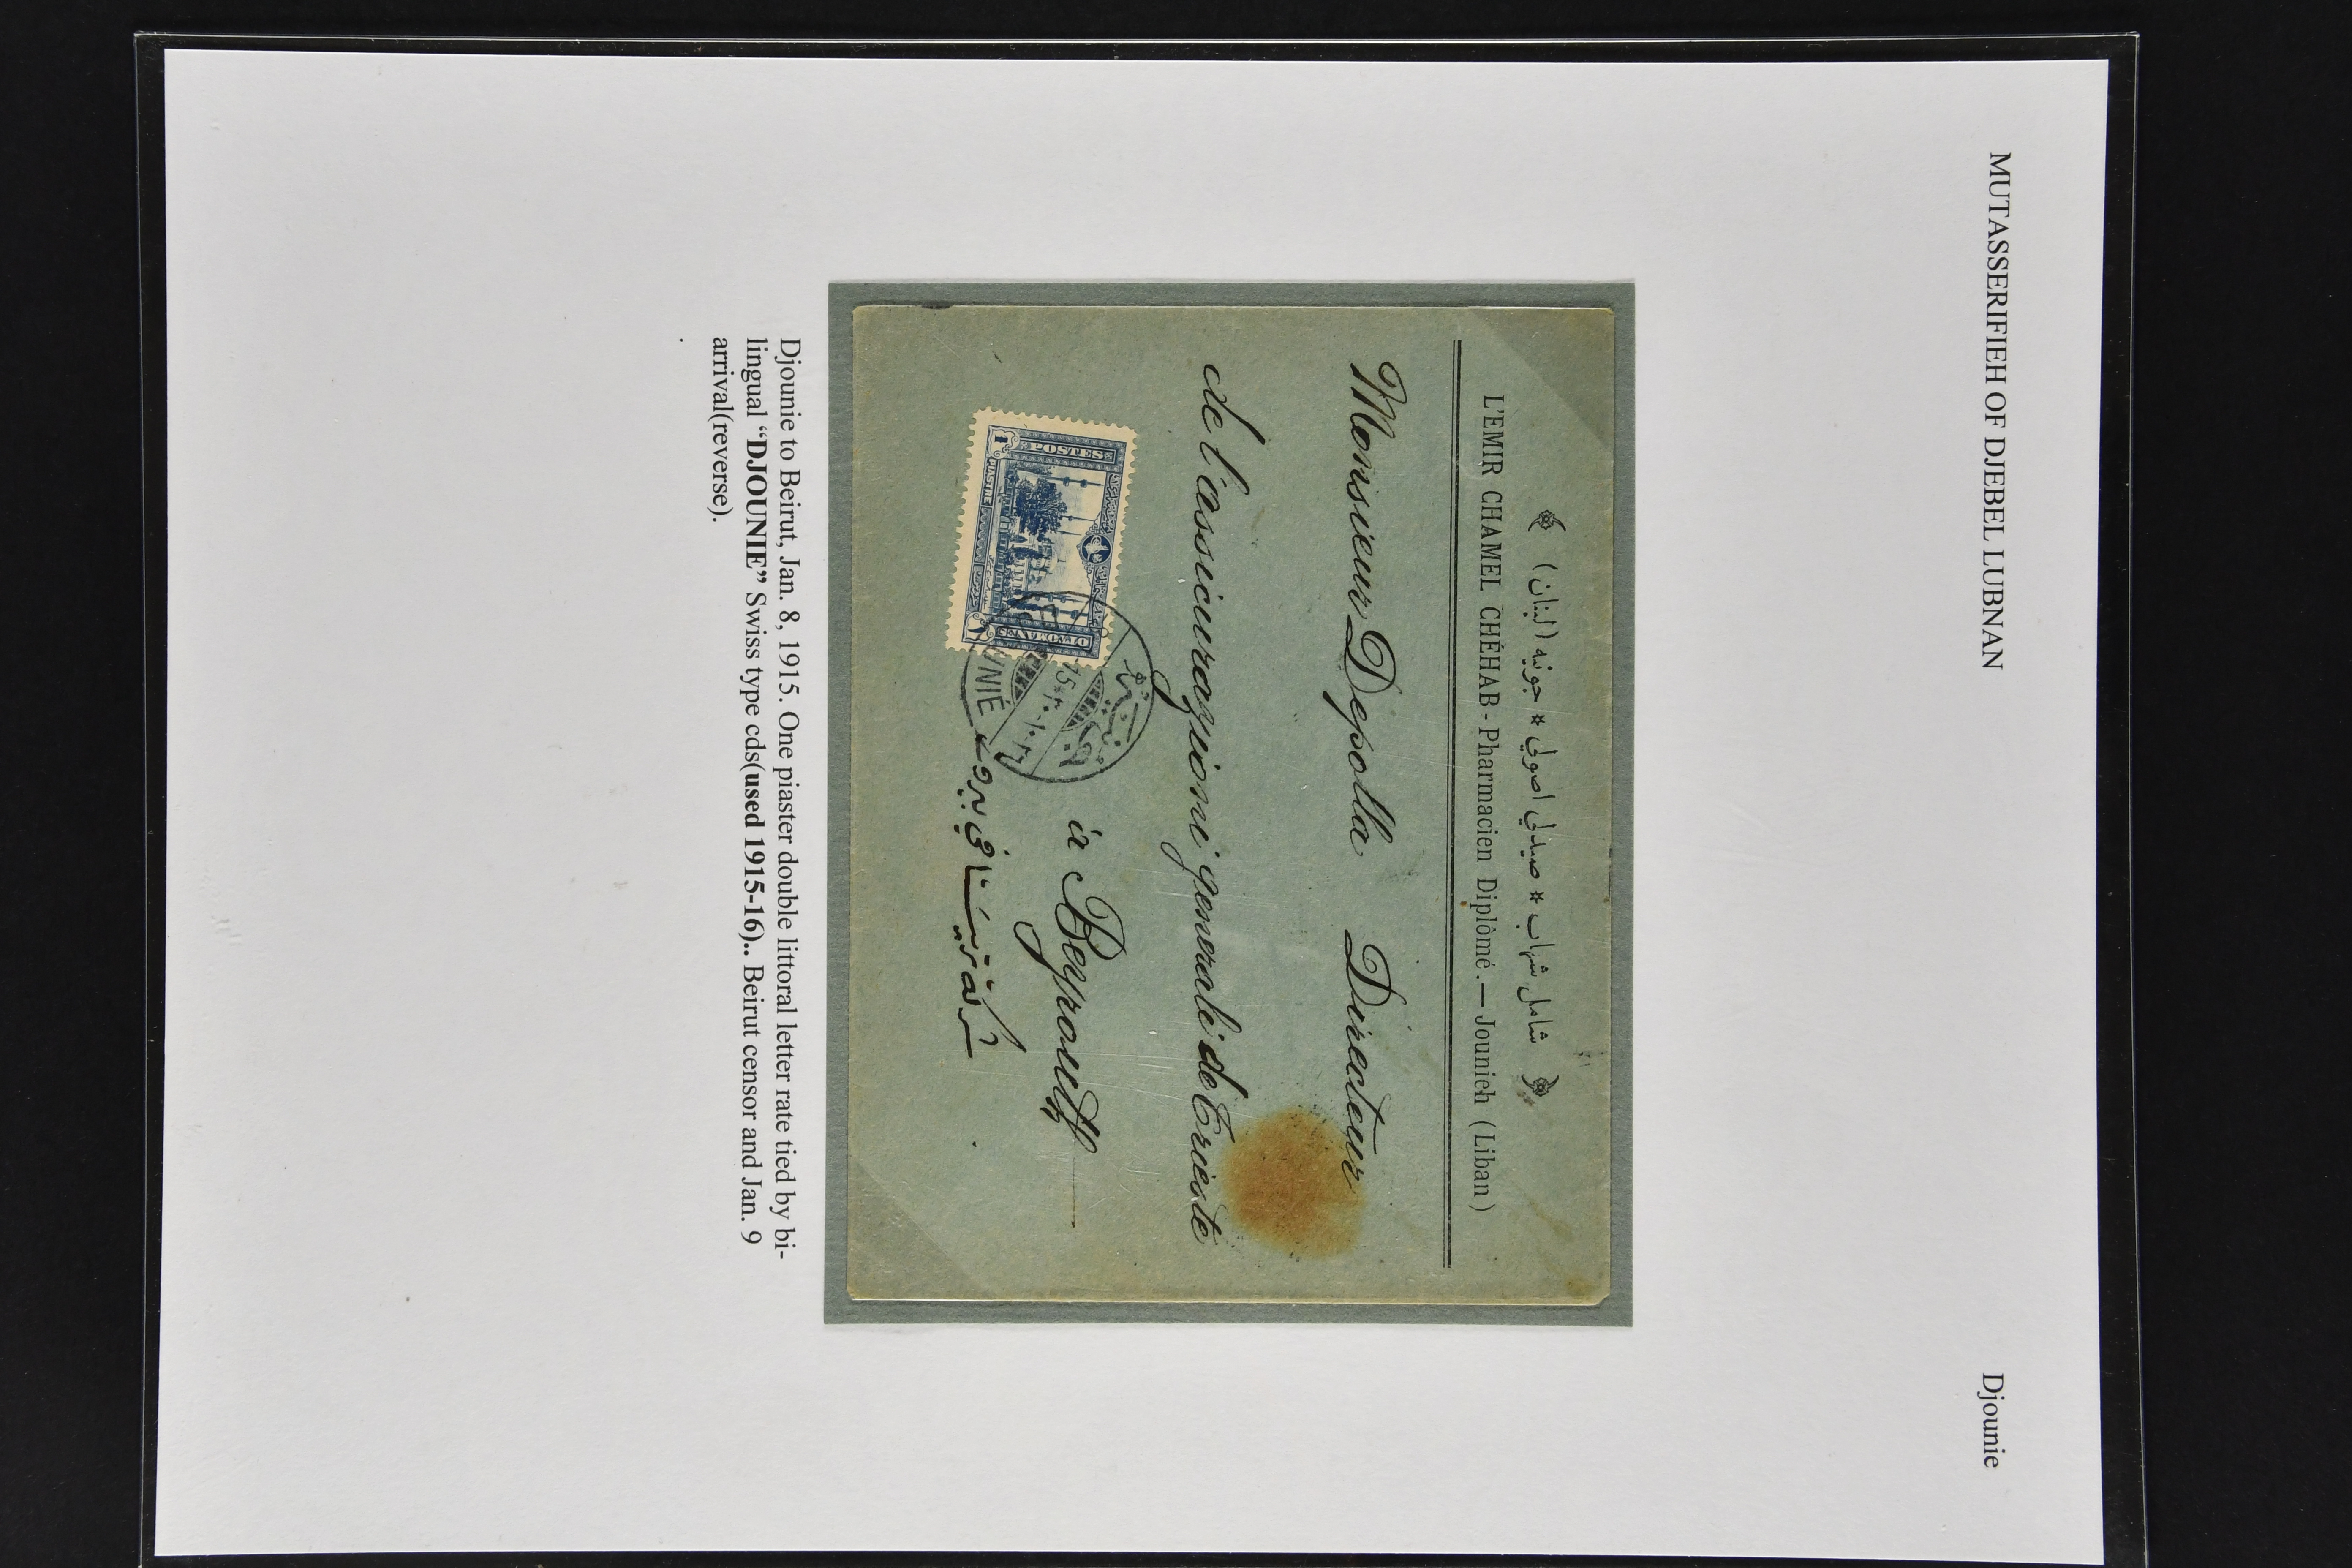 MUTASSERIFIEH OF DJEBEL LUBNAN
Djounie
﴿ شامل شهاب * صيدلي اصولي * جونيه (لبنان) ﴾
L'EMIR CHAMEL CHÉHAB - Pharmacien Diplômé. — Jounieh (Liban)
Monsieur Depolla Directeur
de l'assicurazioni generali de Trieste
à Beyrouth
بيروت
POSTES
OTTOMANES
1
PIASTRE
15
Djounie to Beirut, Jan. 8, 1915. One piaster double littoral letter rate tied by bi-
lingual “DJOUNIE” Swiss type cds(used 1915-16).. Beirut censor and Jan. 9
arrival(reverse).
.